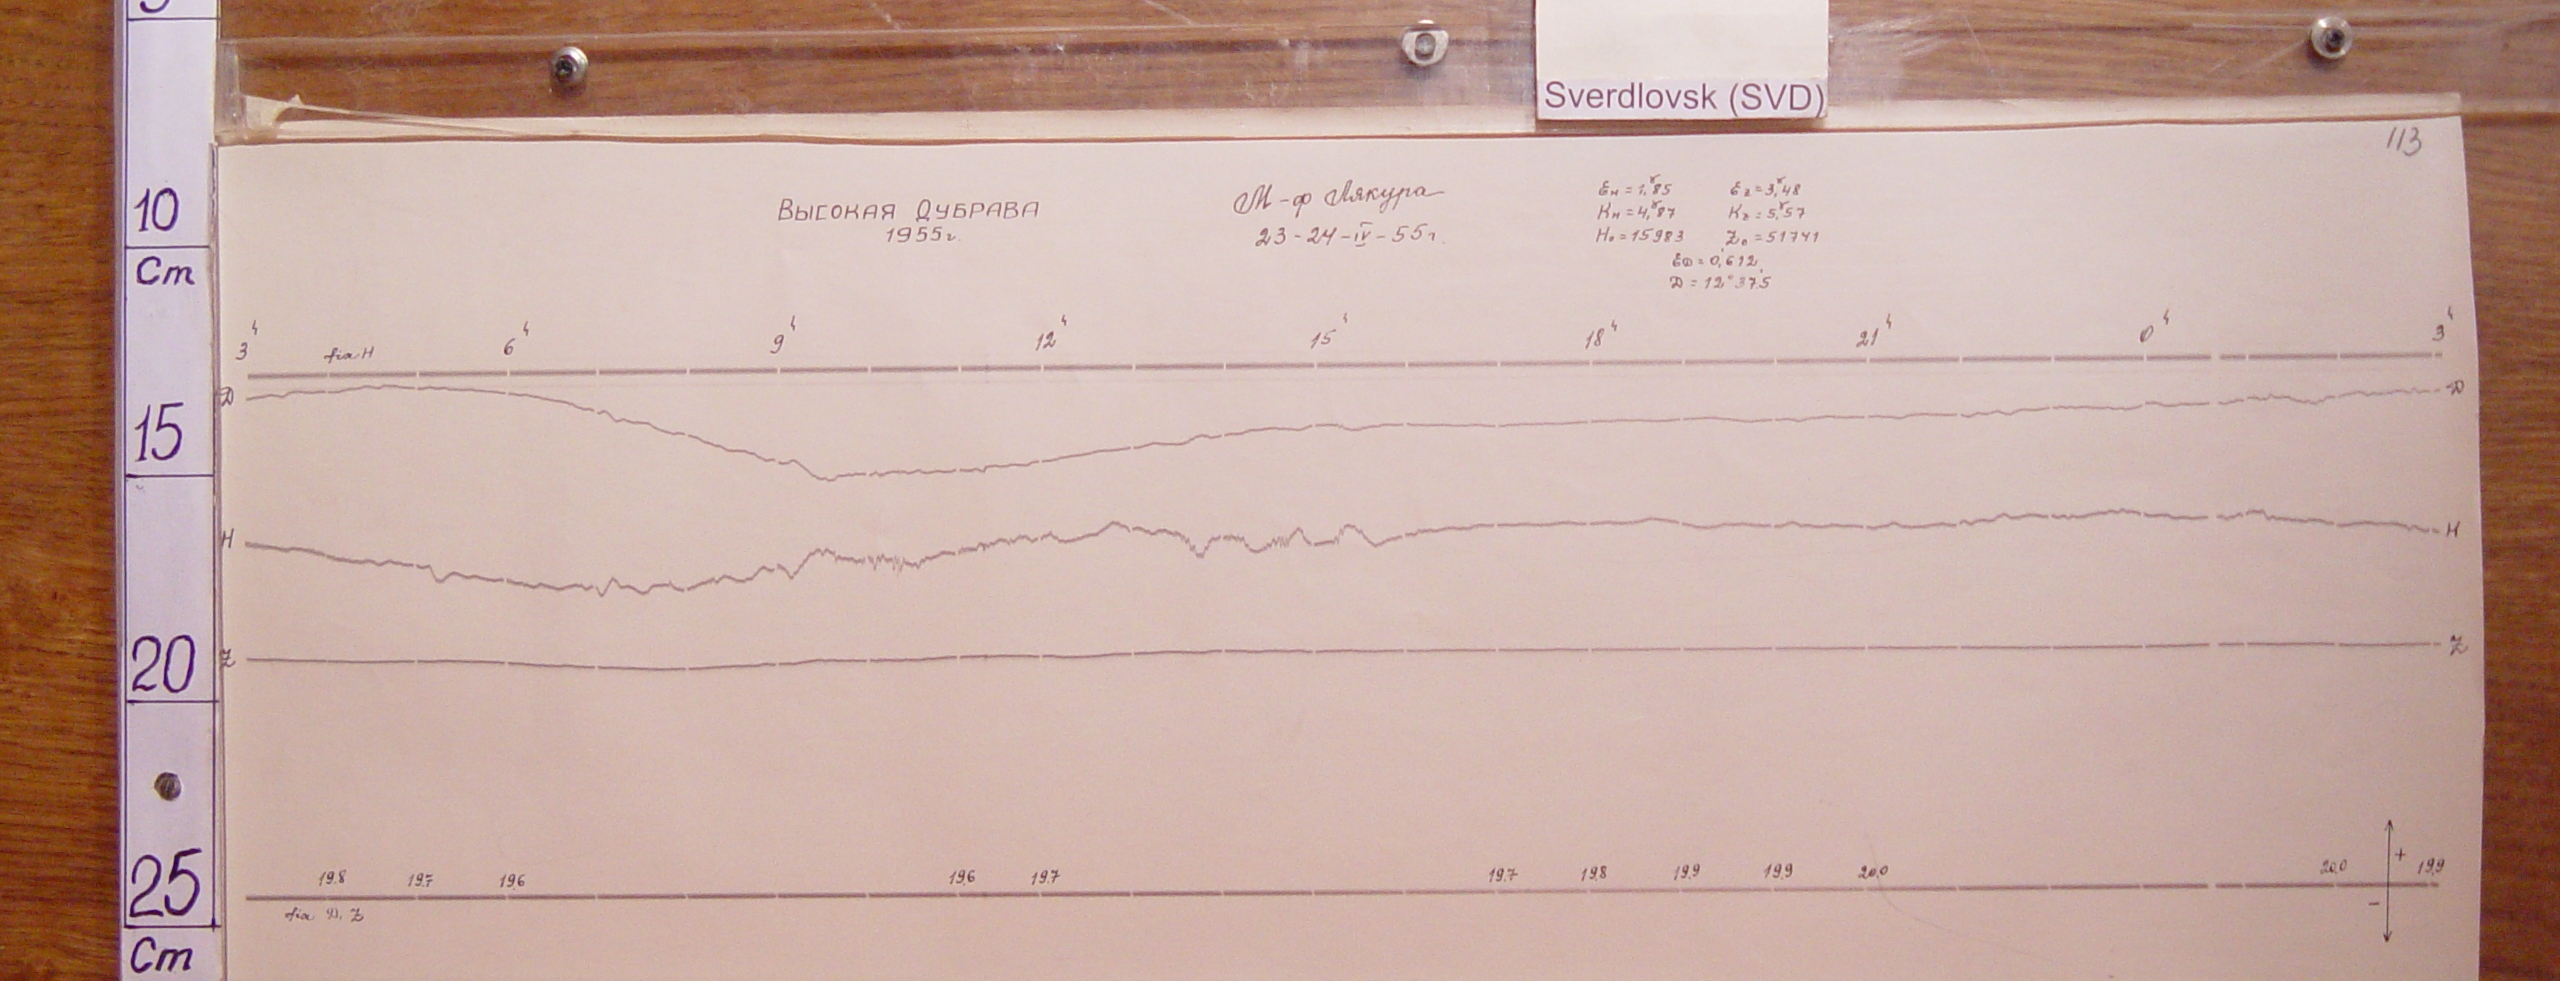 5
Sverdlovsk (SVD)
113
10
Cm
15
20
25
Cm
Высокая Дубрава
1955г.
М-ф Лякура
23-24-IV-55г.
Eн = 1,ˠ85 Ez = 3,ˠ48
Kн = 4,ˠ87 Kz = 5,ˠ57
H₀ = 15983 Z₀ = 51741
ED = 0,′612
D = 12°37,′5
3ʰ 6ʰ 9ʰ 12ʰ 15ʰ 18ʰ 21ʰ 0ʰ 3ʰ
для H
D D
H H
Z Z
19.8 19.7 19.6 19.6 19.7 19.7 19.8 19.9 19.9 20.0 20.0 19.9
+
-
для D, Z